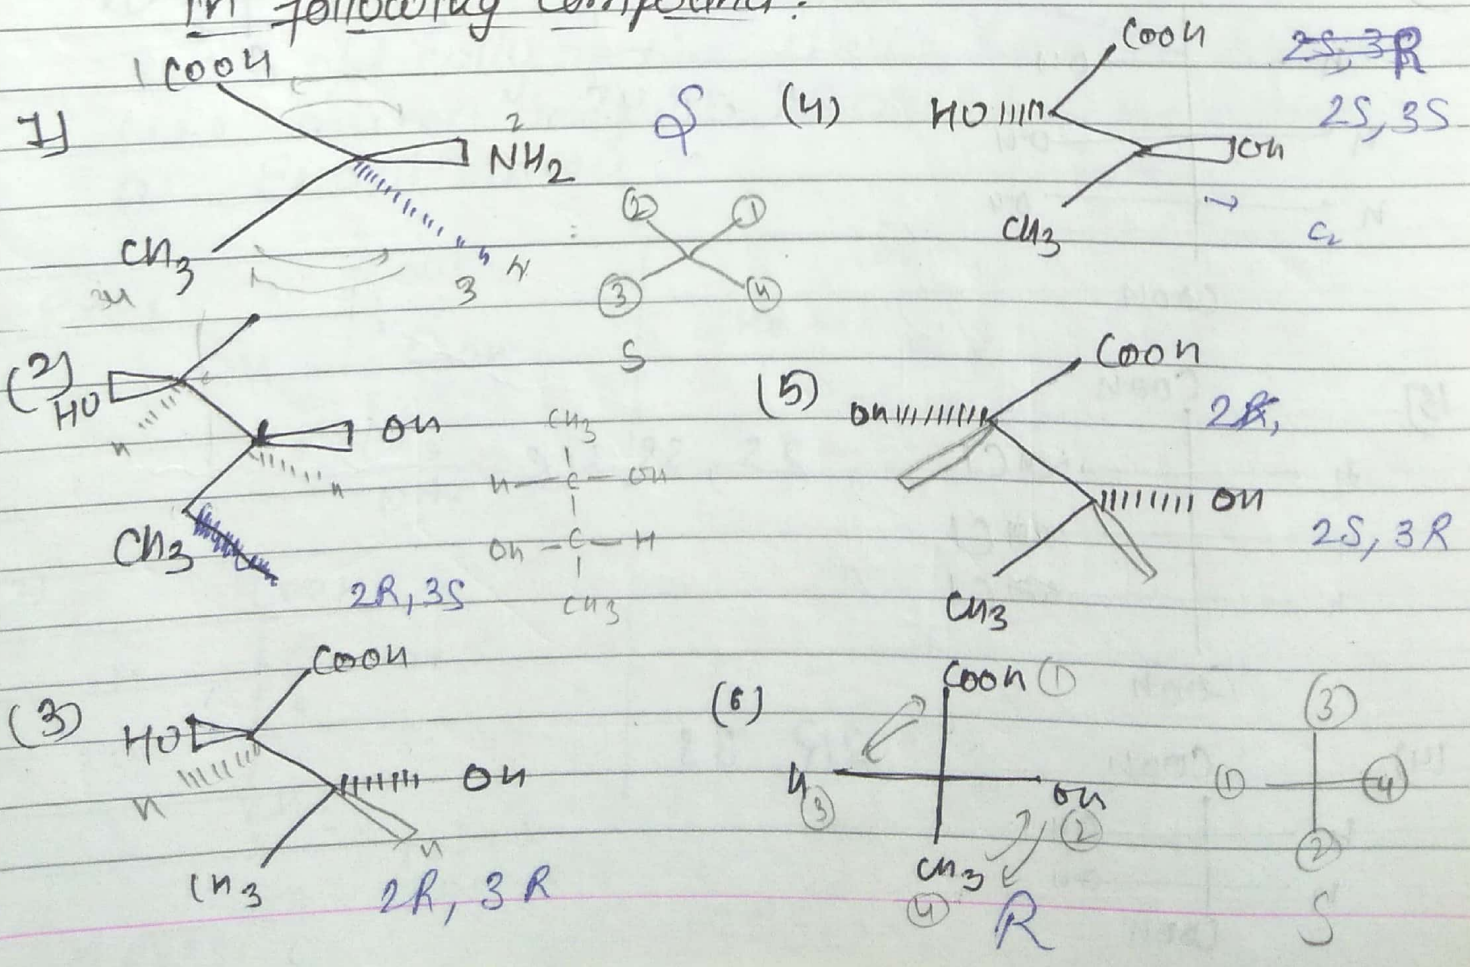 In following compound:
1]
1 COOH
2
NH2
CH3
3 H
S
2 1
3 4
S
(2)
HO
H
OH
H
CH3
2R, 3S
CH3
H - C - OH
OH - C - H
CH3
(3)
COOH
HO
H
OH
H
CH3
2R, 3R
(4)
COOH
HO
OH
CH3
2S, 3R
2S, 3S
(5)
COOH
OH
OH
CH3
2R,
2S, 3R
(6)
COOH 1
H
3
OH
2
CH3
4
R
(3)
1 4
2
S